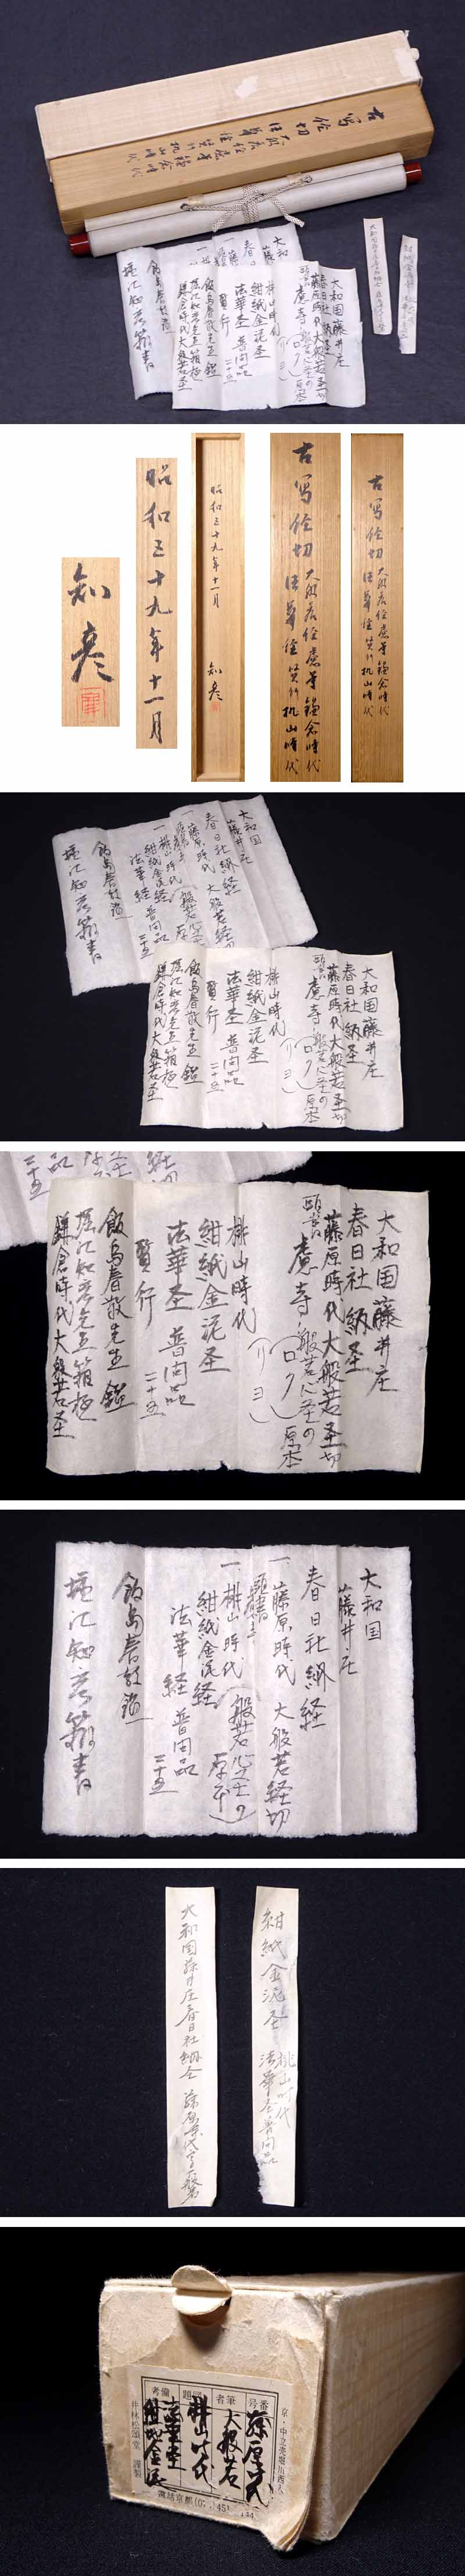 古写経切
大般若経 慶寺 鎌倉時代
法華経 賢行 桃山時代
知彦
昭和三十九年十一月
昭和三十九年十一月
知彦
古写経切
大般若経 慶寺 鎌倉時代
法華経 賢行 桃山時代
古写経切
大般若経 慶寺 鎌倉時代
法華経 賢行 桃山時代
大和国藤井庄
春日社納圣
藤原時代大般若圣切
慶寺
般若心圣の原本
桃山時代
紺紙金泥圣
法華圣 普門品
二十五
賢行
飯島春敬先生 鑑
堀江知彦先生箱極
鎌倉時代大般若圣
大和国
藤井庄
春日社納経
一、藤原時代 大般若経切
一、桃山時代
般若心圣の
原本
紺紙金泥経
法華経 普門品
二十五
飯島春敬鑑
堀江知彦箱書
大和国藤井庄春日社納圣
紺紙金泥圣 桃山時代
法華圣普門品
番号
筆者
題
備考
藤原時代
大般若
桃山時代
法華圣
紺紙金泥
京・中立売堀川西入
井林松頌堂 謹製
電話京都